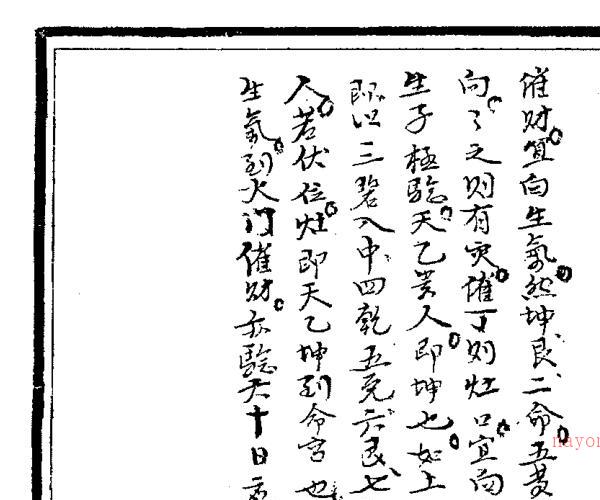 催财宜向生氣然坤艮二命五黄
向々之则有灾催丁则灶口宜向
生子極驗天乙貴人即坤也如上
即以三碧入中四乾五兑六艮七
人若伏位灶即天乙坤到命宫也
生氣到火门催财亦驗六十日
nayon